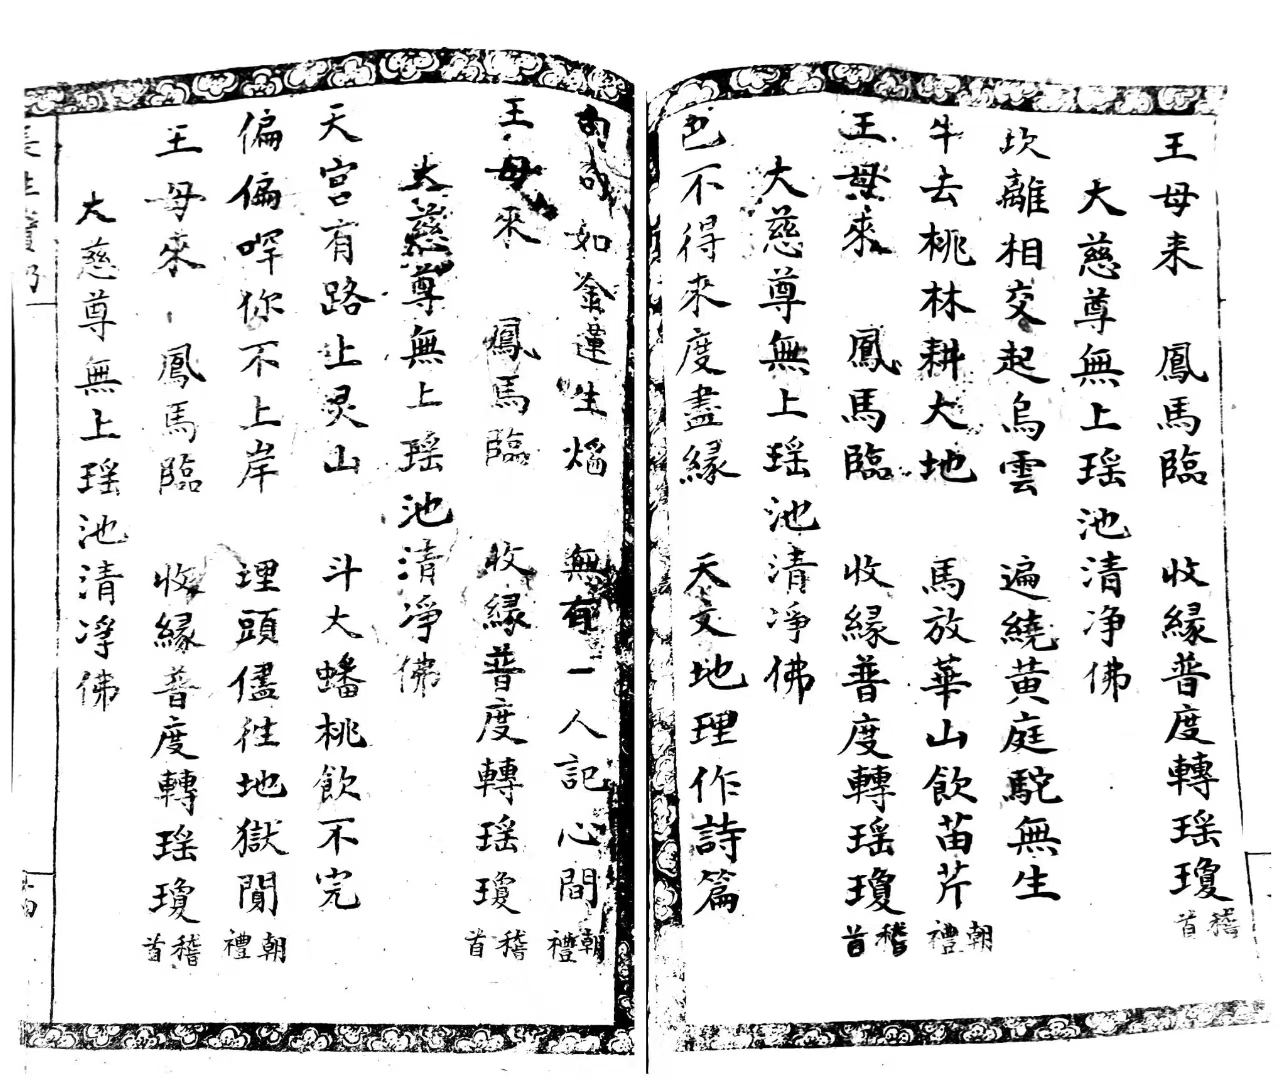 王母来　鳳馬臨　收緣普度轉瑶瓊 稽首
大慈尊無上瑶池清净佛
坎離相交起烏雲　遍繞黄庭駝無生
牛去桃林耕大地　馬放華山飲苗芹 朝禮
王母來　鳳馬臨　收緣普度轉瑶瓊 稽首
大慈尊無上瑶池清净佛
也不得來度盡緣　天文地理作詩篇
如金蓮生焰　無有一人記心間 朝禮
王母來　鳳馬臨　收緣普度轉瑶瓊 稽首
大慈尊無上瑶池清净佛
天宫有路上灵山　斗大蟠桃飲不完
偏偏哶你不上岸　埋頭儘往地獄閒 朝禮
王母來　鳳馬臨　收緣普度轉瑶瓊 稽首
大慈尊無上瑶池清净佛
長生寶